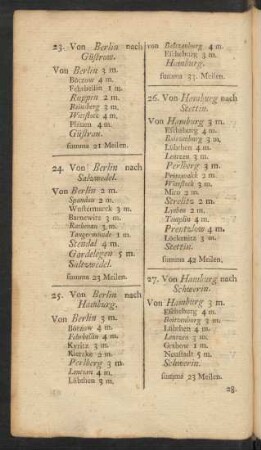 23. Von Berlin nach
Güstrow.
Von Berlin 3 m.
Bötzow 4 m.
Fehrbellin 1 m.
Ruppin 2 m.
Reinsberg 3 m.
Wittstock 4 m.
Plauen 4 m.
Güstrau.
summa 21 Meilen.
24. Von Berlin nach
Saltzwedel.
Von Berlin 2 m.
Spandau 2 m.
Wustermarck 3 m.
Barnewitz 3 m.
Rathenau 3 m.
Tangermünde 1 m.
Stendal 4 m.
Gardelegen 5 m.
Saltzwedel.
summa 23 Meilen.
25. Von Berlin nach
Hamburg.
Von Berlin 3 m.
Bötzow 4 m.
Fehrbellin 4 m.
Kyritz 3 m.
Kletzke 2 m.
Perlberg 3 m.
Lentzen 4 m.
Lübthen 3 m.
von Boitzenburg 4 m.
Escheburg 3 m.
Hamburg.
summa 33 Meilen.
26. Von Hamburg nach
Stettin.
Von Hamburg 3 m.
Escheburg 4 m.
Boitzenburg 3 m.
Lübthen 4 m.
Lentzen 3 m.
Perlberg 3 m.
Pritzwalk 2 m.
Wittstock 3 m.
Mirow 2 m.
Strelitz 2 m.
Lychen 2 m.
Templin 4 m.
Prentzlow 4 m.
Löckenitz 3 m.
Stettin.
summa 42 Meilen.
27. Von Hamburg nach
Schwerin.
Von Hamburg 3 m.
Escheburg 4 m.
Boitzenburg 3 m.
Lübthen 4 m.
Lentzen 3 m.
Grabow 1 m.
Neustadt 5 m.
Schwerin.
summa 23 Meilen.
28.